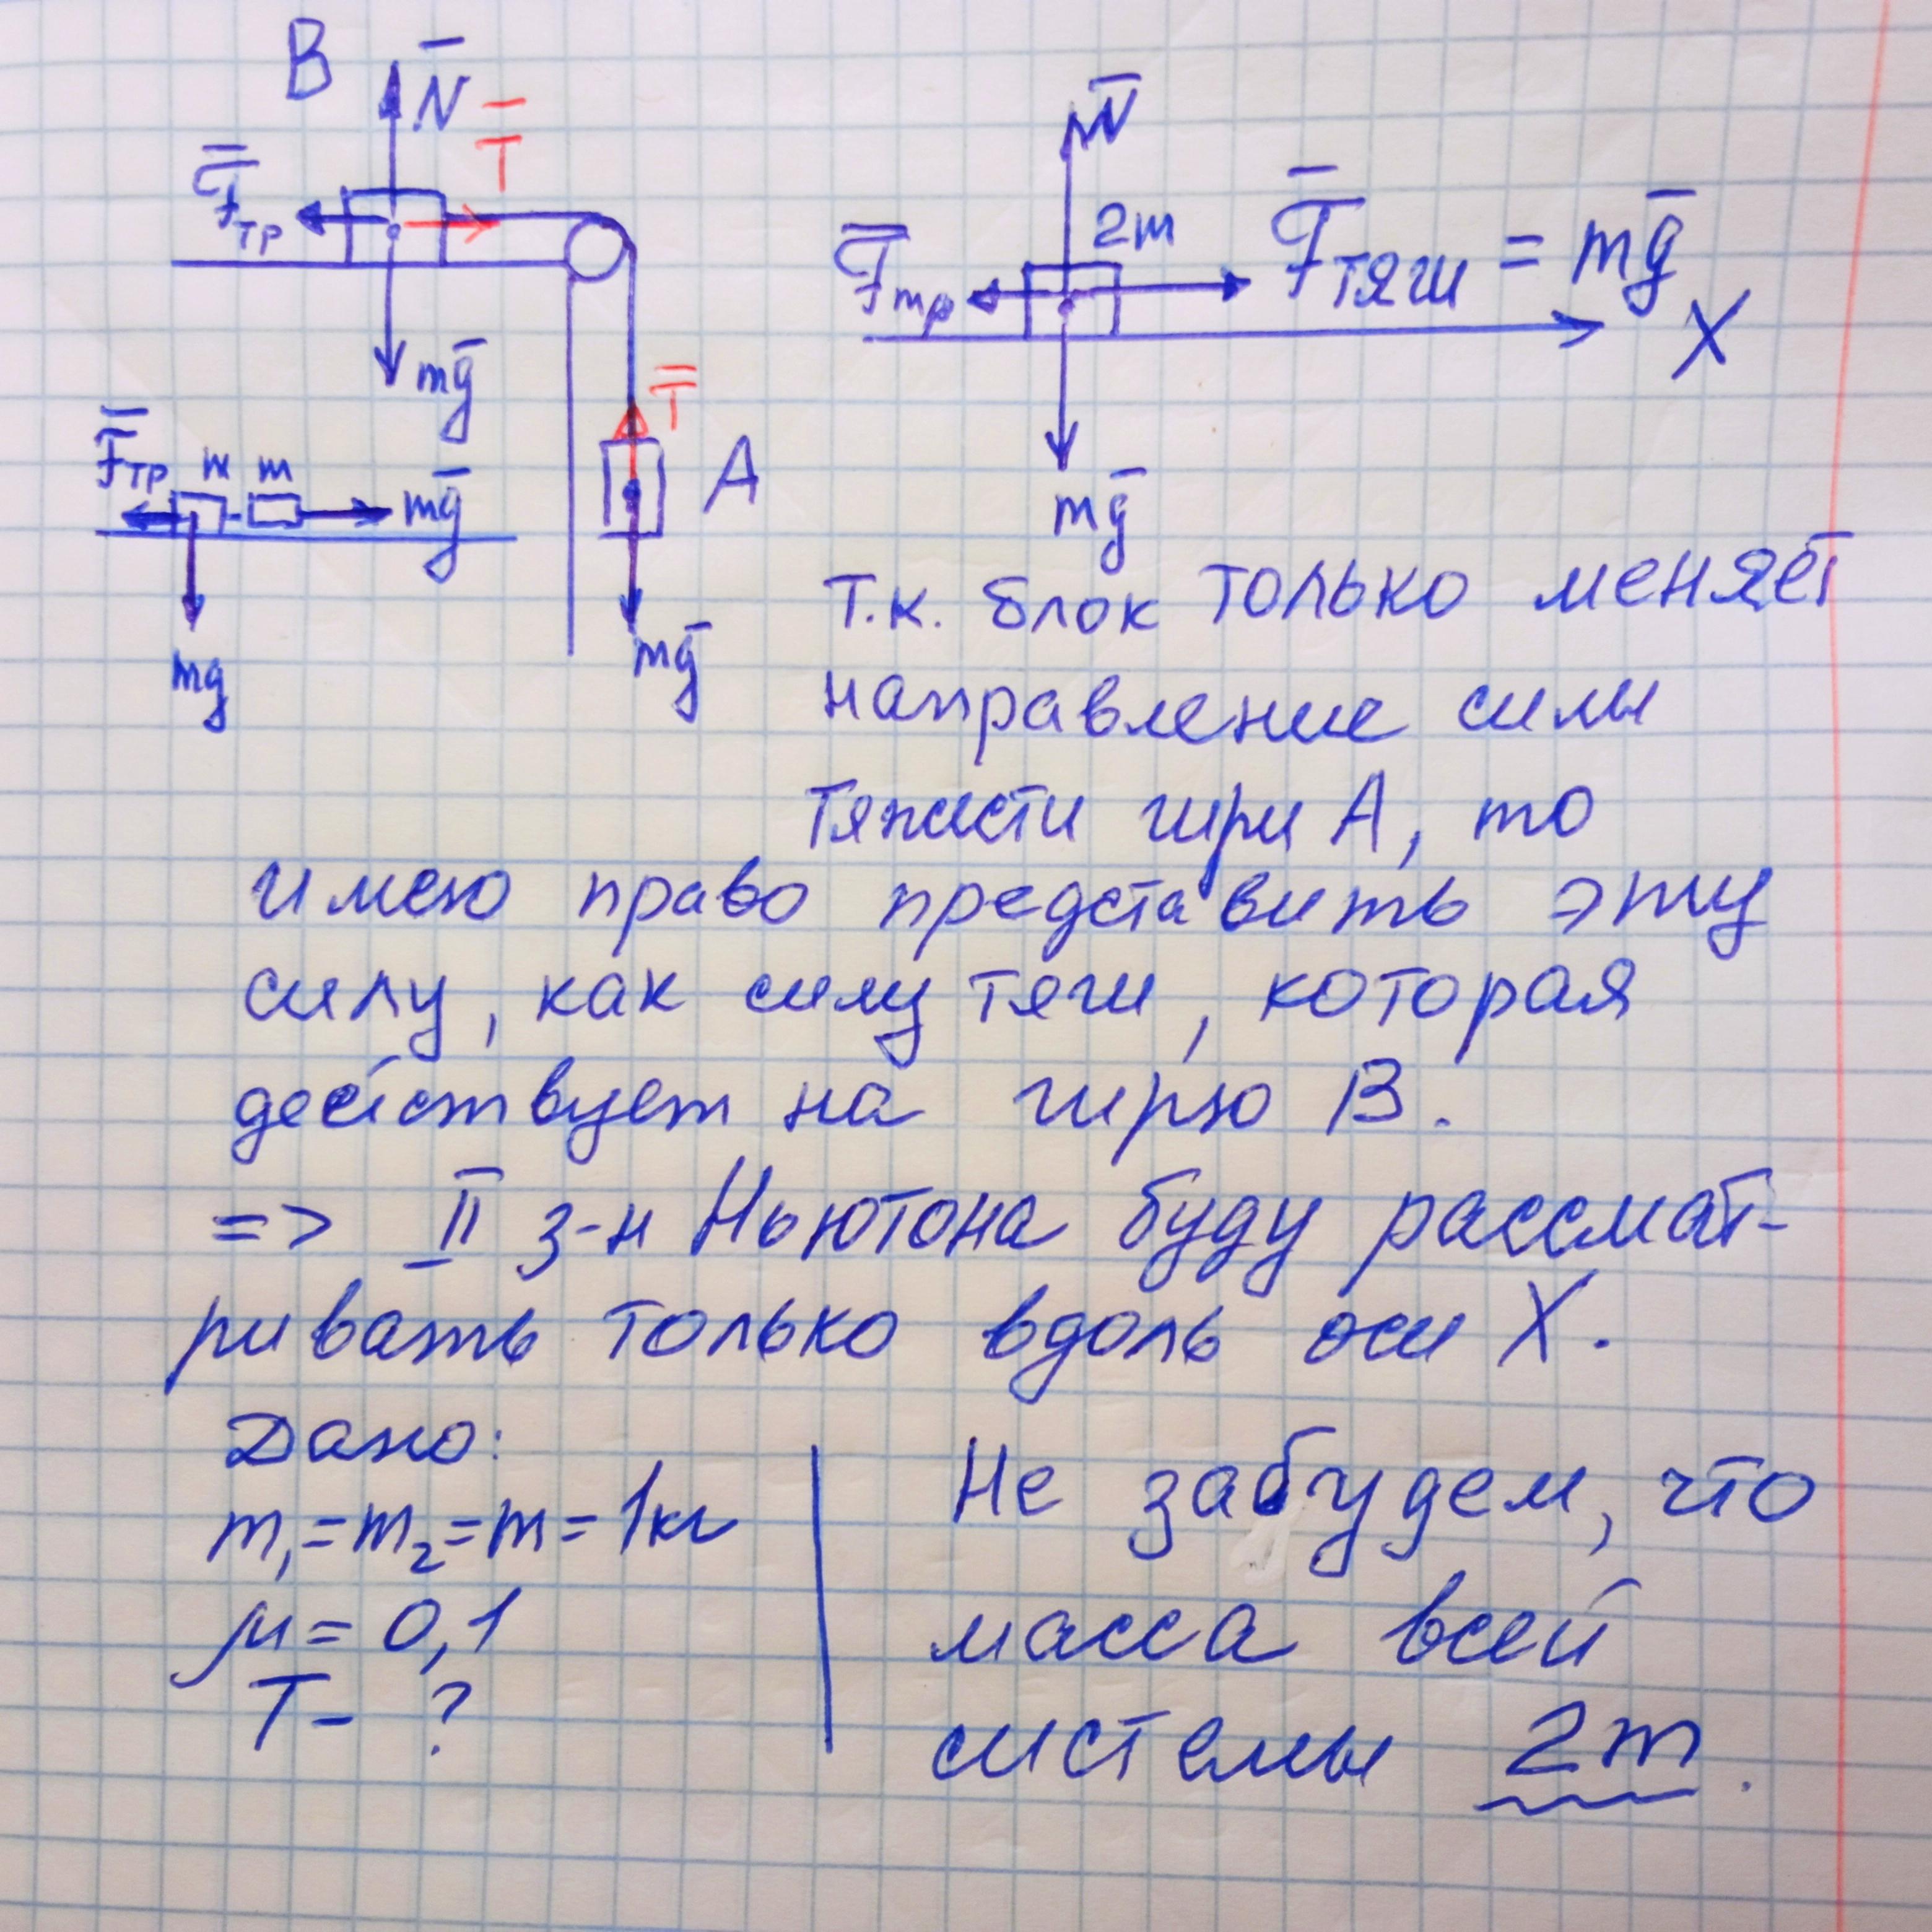 B
N̄
T̄
F̄тр
mḡ
T̄
A
mḡ
F̄тр m m mḡ
mg
N̄
2m
F̄тр
F̄тяги = mḡ
X
mḡ
Т.к. блок только меняет
направление силы
тяжести гири А, то
имею право представить эту
силу, как силу тяги, которая
действует на гирю В.
=> II з-н Ньютона буду рассмат-
ривать только вдоль оси X.
Дано:
m₁=m₂=m=1кг
μ=0,1
T-?
Не забудем, что
масса всей
системы 2m.